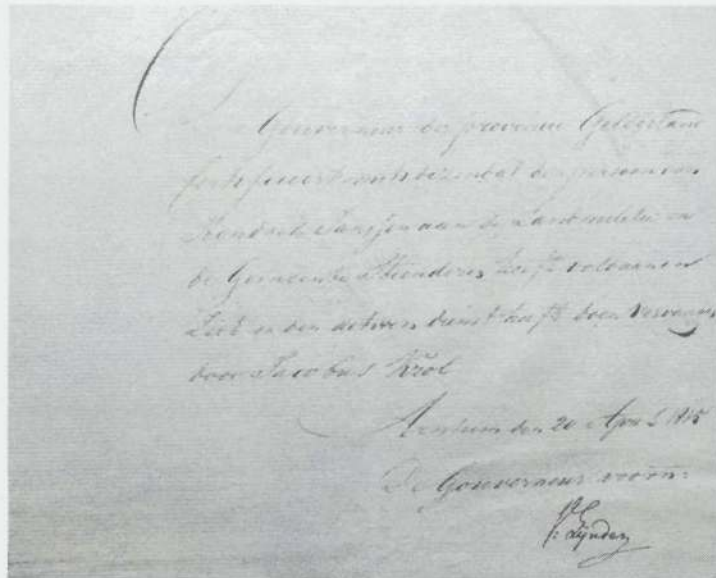 De
Gouverneur der provincie Gelderland
Certificeert mits dezen dat de persoon van
Hendrik Janssen aan de Landmilitie in
de Gemeente Steenderen heeft voldaan en
Zich in den activen dienst heeft doen vervangen
door Jacobus Krol
Arnhem den 20 April
De Gouverneur voorn:
Lijnden